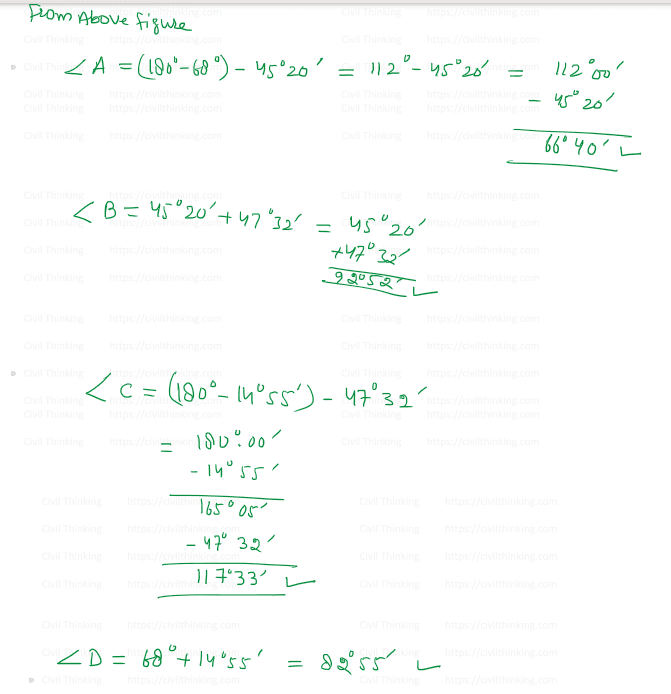 From Above figure
∠A = (180°-68°) - 45°20' = 112° - 45°20' = 112°00'
- 45°20'
66°40' ✓
∠B = 45°20' + 47°32' = 45°20'
+47°32'
92°52' ✓
∠C = (180° - 14°55') - 47°32'
= 180°.00'
- 14°55'
165°05'
- 47°32'
117°33' ✓
∠D = 68° + 14°55' = 82°55' ✓
Civil Thinking https://civilthinking.com